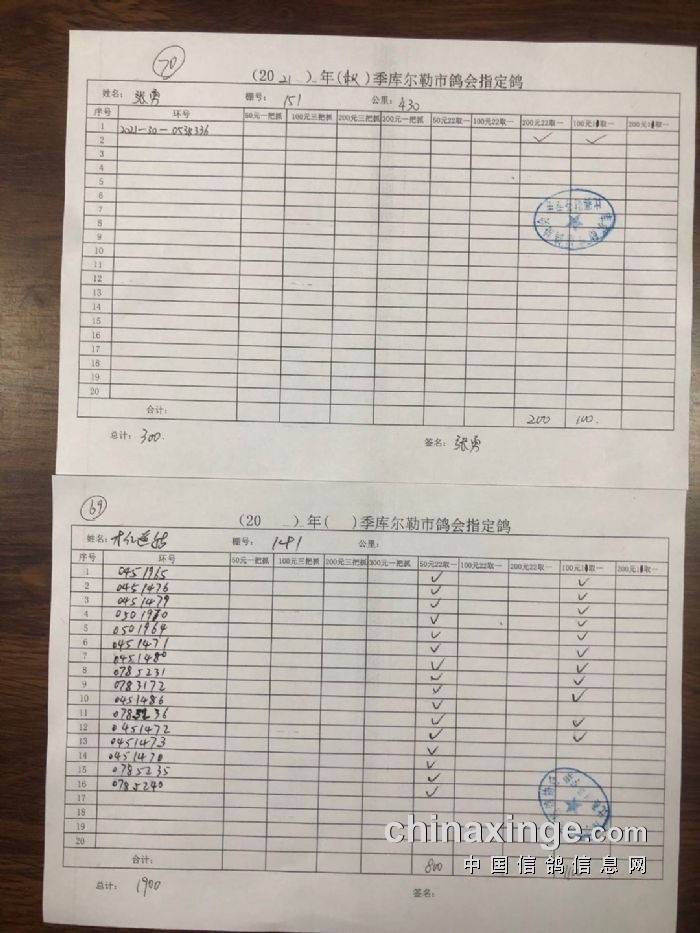 70
(20 21 )年(秋)季库尔勒市鸽会指定鸽
姓名: 张勇 棚号: 151 公里: 430
序号 环号 50元一把抓 100元三把抓 200元三把抓 300元一把抓 50元22取一 100元22取一 200元22取一 100元10取一 200元10取一
1 2021-30-0538336
2 ✓ ✓
3
4
5
6
7
8
9
10
11
12
13
14
15
16
17
18
19
20
合计: 200 100.
总计: 300. 签名: 张勇
69
(20 )年( )季库尔勒市鸽会指定鸽
姓名: 棚号: 141 公里:
序号 环号 50元一把抓 100元三把抓 200元三把抓 300元一把抓 50元22取一 100元22取一 200元22取一 100元10取一 200元10取一
1 0451965 ✓ ✓
2 0451476 ✓ ✓
3 0451479 ✓ ✓
4 ✓ ✓
5 0501964 ✓ ✓
6 0451471 ✓ ✓
7 0451480 ✓ ✓
8 0785231 ✓ ✓
9 0783172 ✓ ✓
10 0451486 ✓
11 ✓ ✓
12 0451472 ✓ ✓
13 0451473 ✓
14 0451470 ✓
15 0785235 ✓
16 0785240 ✓
17
18
19
20
合计: 800
总计: 1900 签名:
chinaxinge.com
中国信鸽信息网